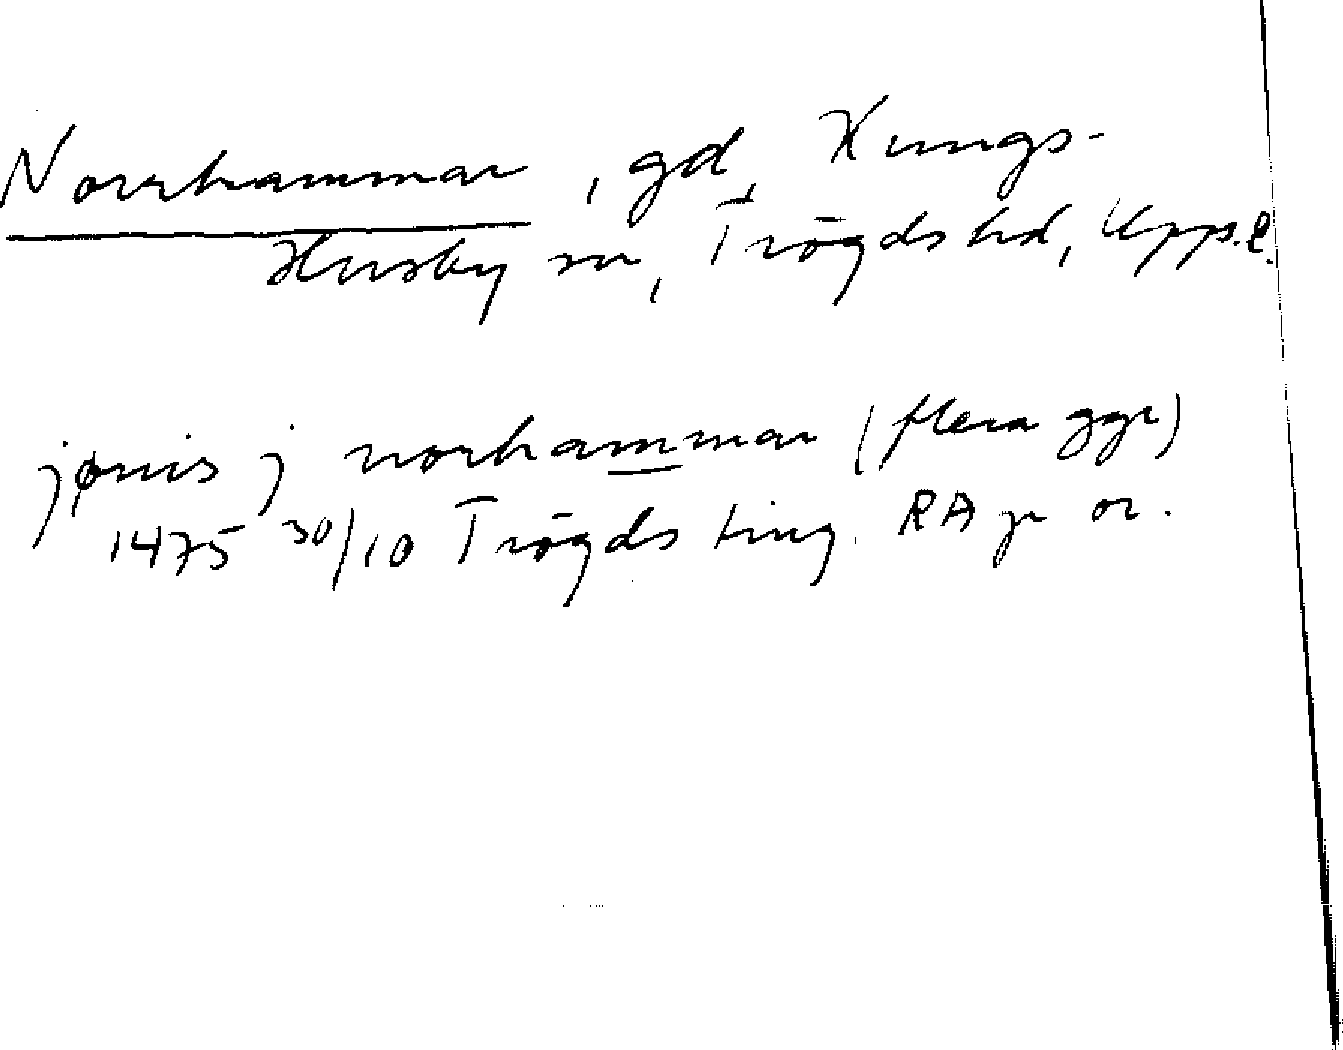 Norrhammar, gd, Kungs-
Husby sn, Trögds hd, Upps.l.
jønis j norhammar (flera ggr)
1475 30/10 Trögds ting. RA pr or.